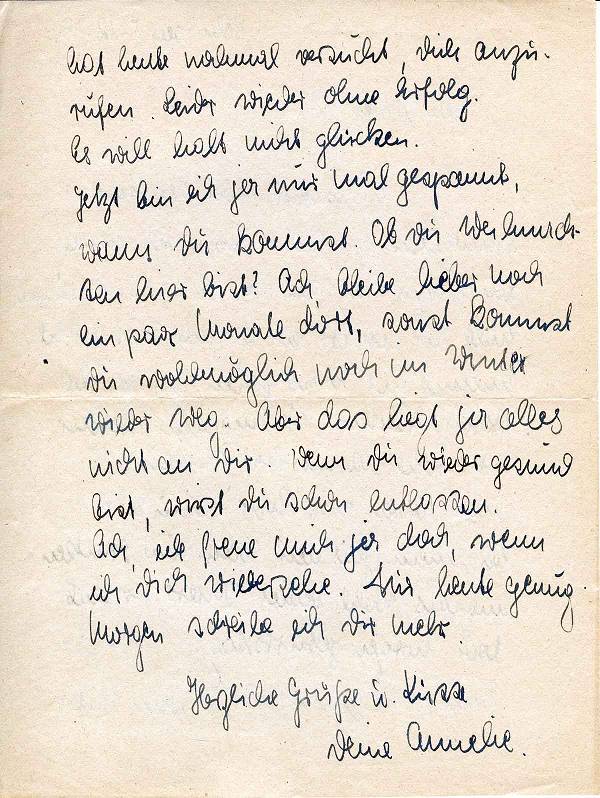 hat heute nochmal versucht, dich anzu-
rufen. Leider wieder ohne Erfolg.
Es will halt nicht glücken.
Jetzt bin ich ja nur mal gespannt,
wann du kommst. Ob du Weihnach-
ten hier bist? Ach, bleibe lieber noch
ein paar Monate dort, sonst kommst
du wohlmöglich noch im Winter
wieder weg. Aber das liegt ja alles
nicht an Dir. Wenn du wieder gesund
bist, wirst du schon entlassen.
Ach, ich freue mich ja doch, wenn
ich dich wiedersehe. Für heute genug.
Morgen schreibe ich dir mehr.
Herzliche Grüße u. Küsse
deine Annelie.